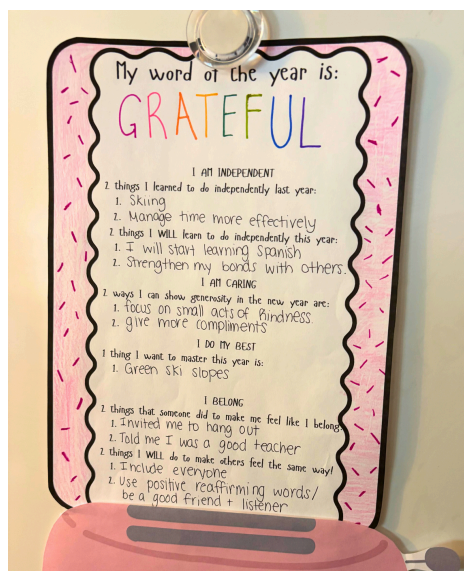 My word of the year is:
GRATEFUL
I AM INDEPENDENT
2 things I learned to do independently last year:
1. Skiing
2. Manage time more effectively
2 things I WILL learn to do independently this year:
1. I will start learning Spanish
2. Strengthen my bonds with others.
I AM CARING
2 ways I can show generosity in the new year are:
1. focus on small acts of kindness.
2. give more compliments
I DO MY BEST
1 thing I want to master this year is:
1. Green ski slopes
I BELONG
2 things that someone did to make me feel like I belong:
1. Invited me to hang out
2. Told me I was a good teacher
2 things I WILL do to make others feel the same way!
1. Include everyone
2. Use positive reaffirming words/
be a good friend + listener